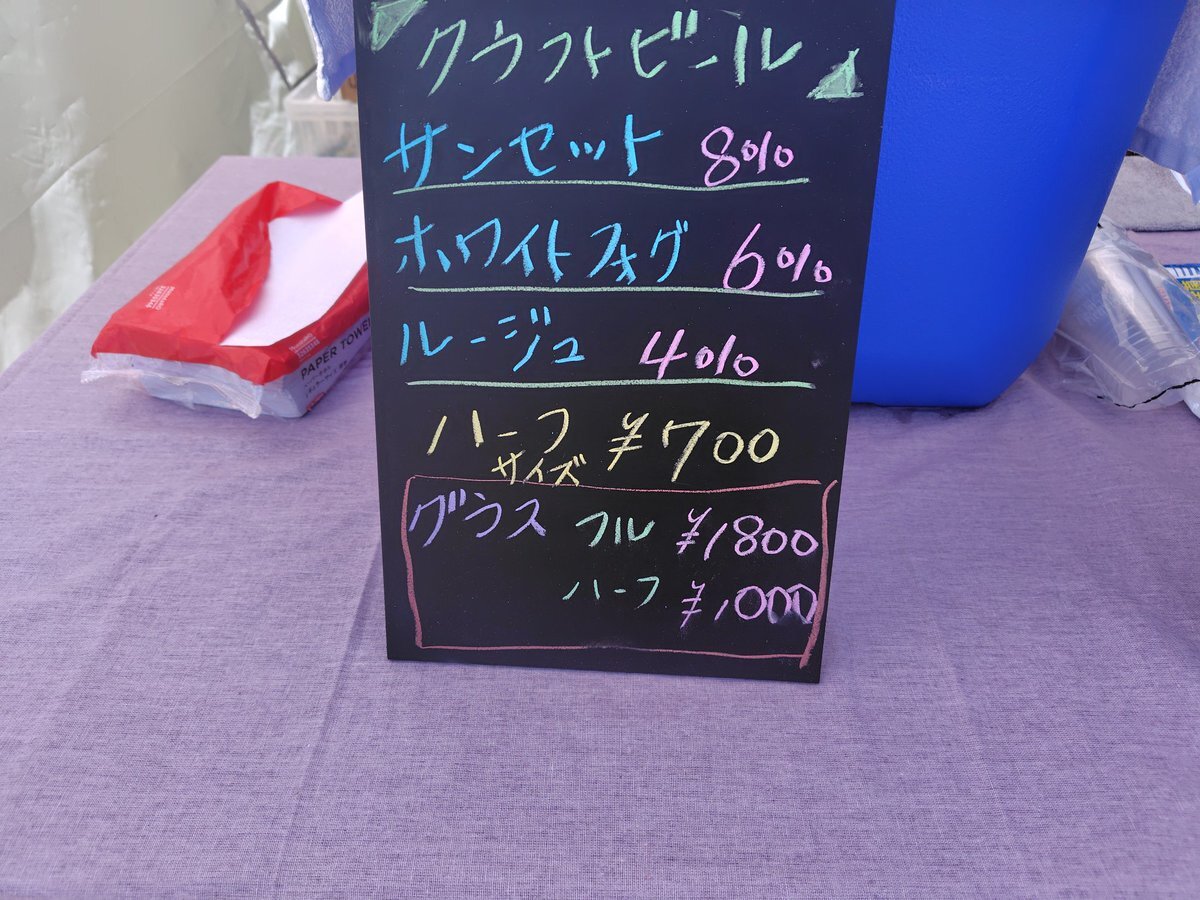 クラフトビール
サンセット 8%
ホワイトフォグ 6%
ルージュ 4%
ハーフサイズ ¥700
グラス フル ¥1800
ハーフ ¥1,000
PAPER TOWEL